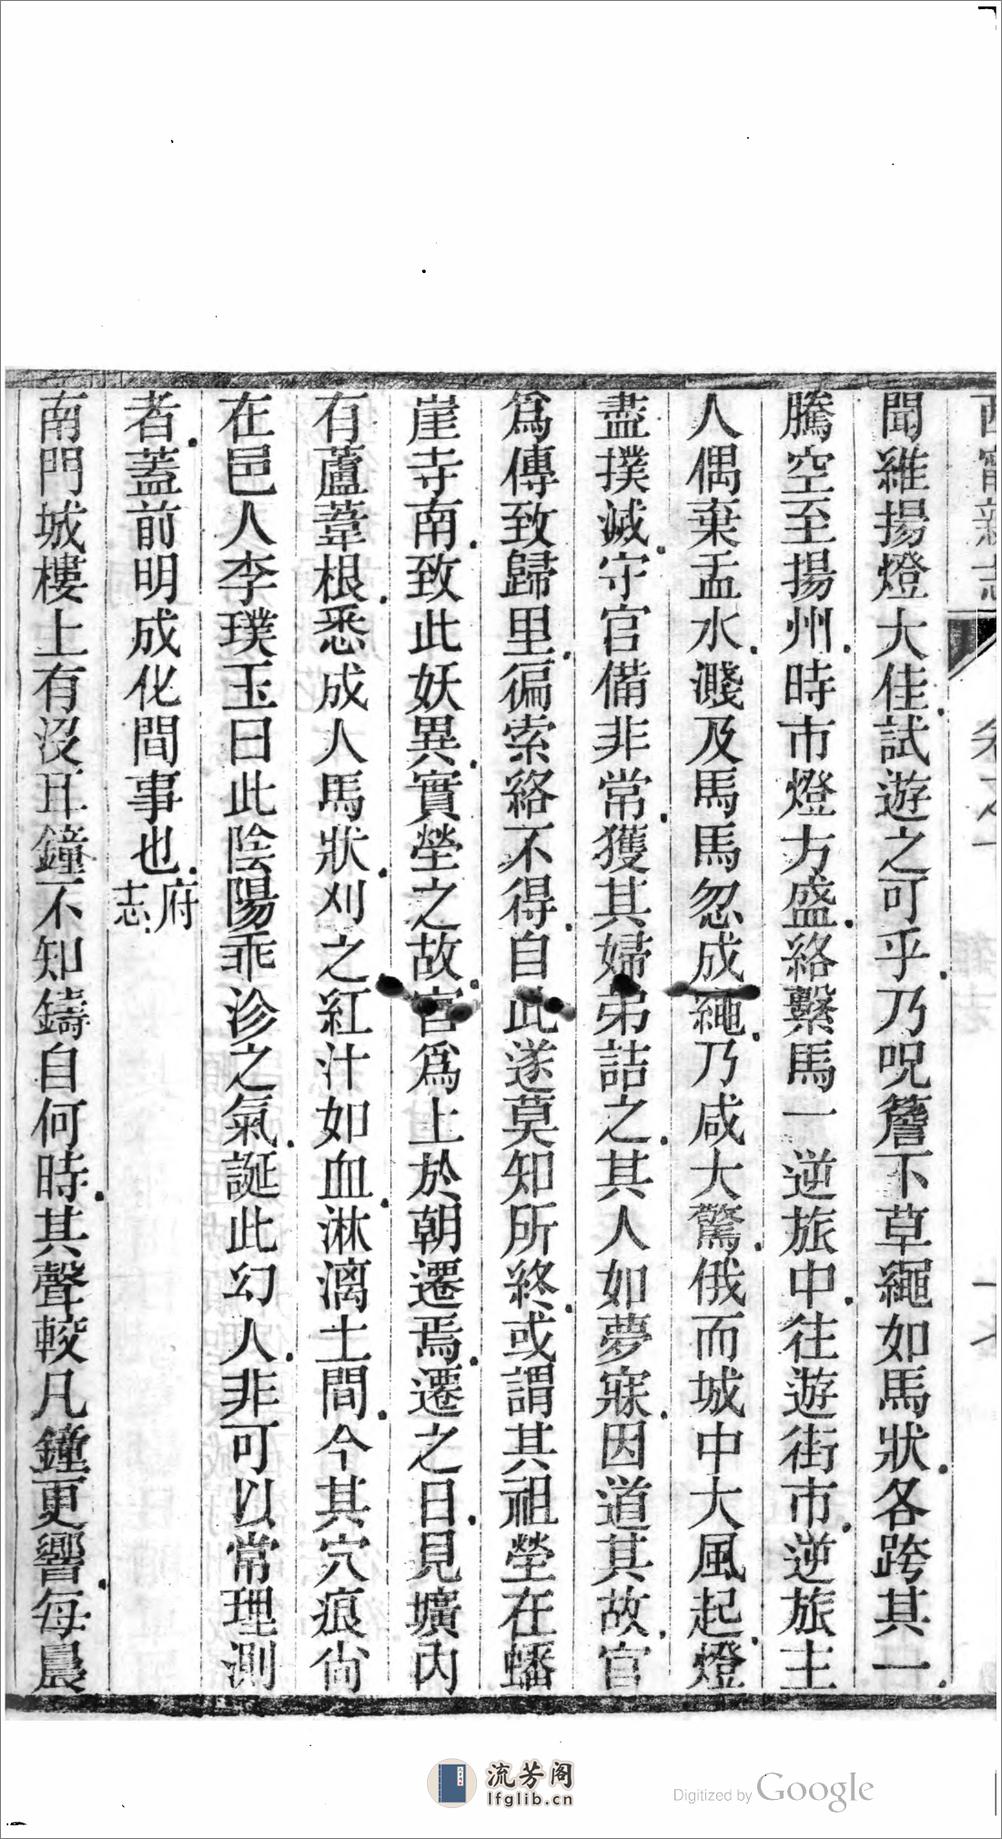 聞維揚燈大佳試遊之可乎乃呪簷下草繩如馬狀各跨其一
騰空至揚州時市燈方盛絡繫馬一逆旅中往遊街市逆旅主
人偶棄盂水濺及馬馬忽成繩乃咸大驚俄而城中大風起燈
盡撲滅守官備非常獲其婦弟詰之其人如夢寐因道其故官
爲傳致歸里徧索絡不得自此遂莫知所終或謂其祖塋在蟠
崖寺南致此妖異實塋之故官爲上於朝遷焉遷之日見壙內
有蘆葦根悉成人馬狀刈之紅汁如血淋漓土間今其穴痕尙
在邑人李璞玉曰此陰陽乖沴之氣誕此幻人非可以常理測
者蓋前明成化間事也府志
南門城樓上有沒耳鐘不知鑄自何時其聲較凡鐘更響每晨
流芳阁
lfglib.cn
Digitized by Google